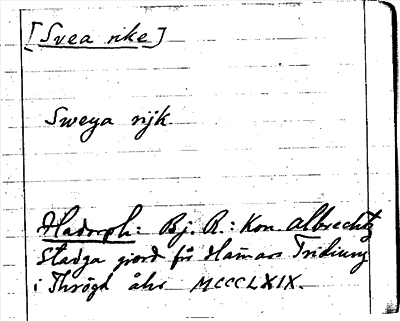 [Svea rike]
Sweya rijk
Hadorph: Bj. R.: Kon Albrechtz
Stadga giord för Hamars Tridiung
i Thrögd åhr MCCCLXIX.